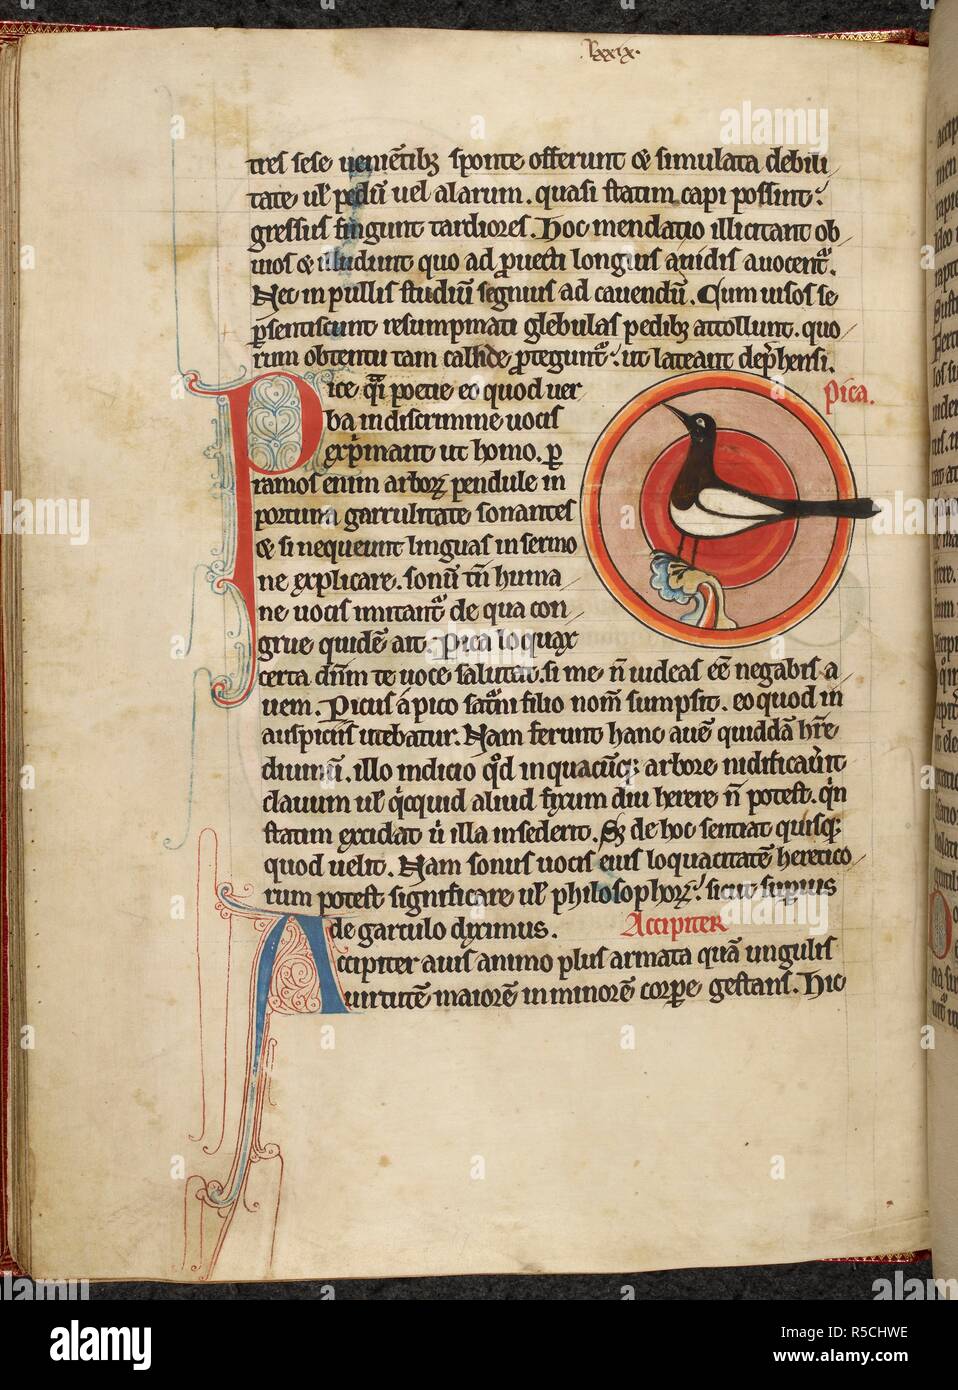 lxxix.
tres sese ueniẽtibꝫ sponte offerunt ⁊ simulata debili
tate uł pedũ uel alarum. quasi statim capi possint?
gressus fingunt tardiores. Hoc mendatio illicitant ob
uios ⁊ illudunt quo ad ꝓuecti longius auidis auocent᷑.
Nec in pullis studiũ segnius ad cauendũ. Cum uisos se
p̃sentiscunt resumpinati glebulas pedibꝫ attollunt. quo
rum obtentu tam callide ꝓtegunt᷑. ut lateant dep̃hensi.
Pice q̃i poetie eo quod uer
pica.
ba in discrimine uocis
exp̃mant ut homo. ꝑ
ramos enim arboꝝ pendule in
portuna garrulitate sonantes
⁊ si nequeunt linguas in sermo
ne explicare. sonũ tñ huma
ne uocis imitant᷑ de qua con
grue quidẽ ait. Pica loquax
certa dñm te uoce salutat. si me ñ uideas eẽ negabis a
uem. Picus a pico sat᷑ni filio nom̃ sumpsit. eo quod in
auspiciis utebatur. Nam ferunt hanc auẽ quiddã
diuinũ. illo indicio qd̃ in quacũqꝫ arbore nidificau̾it
clauum uł q̇cquid aliud fixum diu herere ñ potest. qin
statim excidat u̇ illa insederit. Sꝫ de hoc sentiat quisqꝫ
quod uelit. Nam sonus uocis eius loquacitatẽ heretico
rum potest significare uł philosophoꝝ. sicut sup̾ius
de garrulo diximus. Accipiter
Accipiter auis animo plus armata quã ungulis
uirtutẽ maiorẽ in minorẽ corpore gestans. Hic
alamy
Image ID: R5CHWE
www.alamy.com